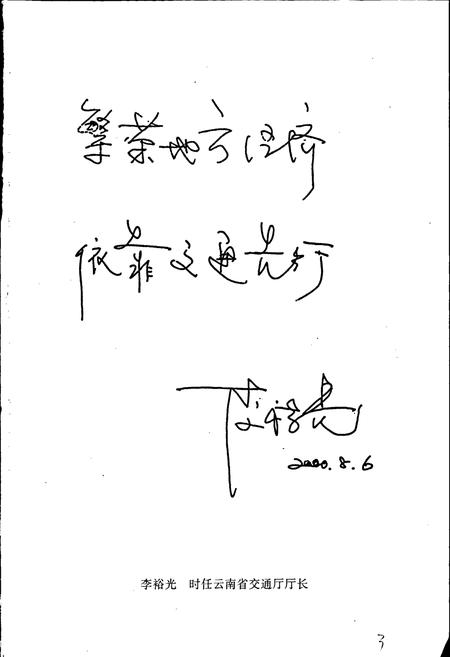 繁荣地方经济
依靠交通先行
李裕光
2000.8.6
李裕光 时任云南省交通厅厅长
3